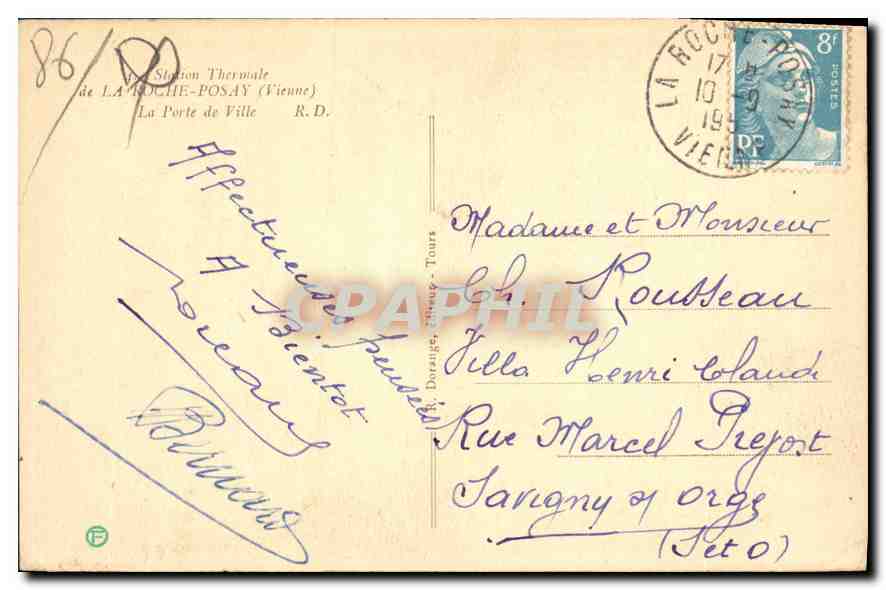 86/
La Station Thermale
de LA ROCHE-POSAY (Vienne)
La Porte de Ville R. D.
LA ROCHE-POSAY
17 H
10 -9
195
VIENNE
8f
POSTES
RF
Affectueuses pensées
A Bientot
Bernard
R. Dorange, éditeur - Tours
Madame et Monsieur
Ch. Rousseau
Villa Henri Claude
Rue Marcel Prejost
Savigny s/ Orge
(S et O)
CPAPHIL